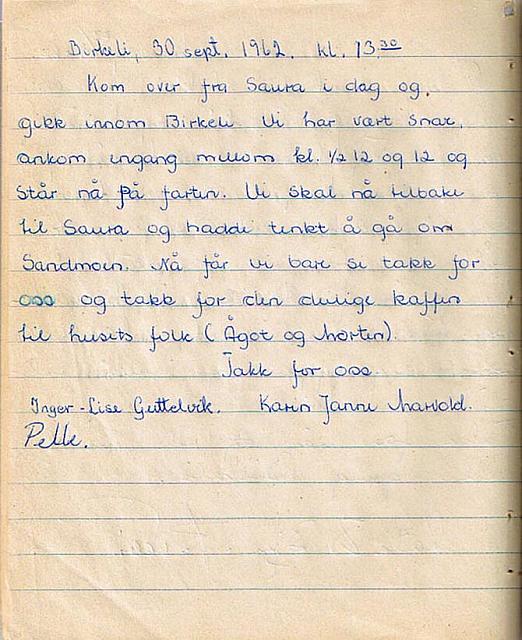 Birkeli, 30 sept. 1962. kl. 13.30
Kom over fra Saura i dag og,
gikk innom Birkeli. Vi har vært snar,
ankom ingang mellom kl. 1/2 12 og 12 og
står nå på farten. Vi skal nå tilbake
til Saura og hadde tenkt å gå om
Sandmoen. Nå får vi bare si takk for
oss og takk for den deilige kaffen
til husets folk (Ågot og Morten).
Takk for oss.
Inger-Lise Guttelvik. Karin Janne Marvold.
Pelle.